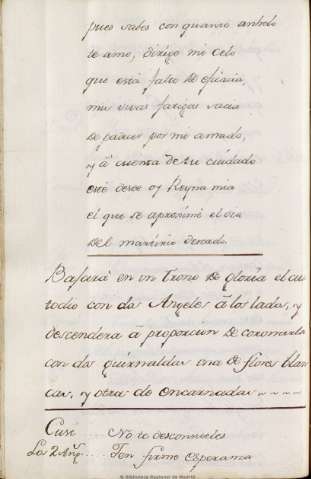 pues sabes con quanto anhelo
te amo, dirige mi celo
que está falto de eficacia,
mis vivas fatigas sacia
de padecer por mi amado,
y â cuenta de tu cuidado
esté desde oy Reyna mia
el que se aproxime el dia
del martirio deseado.
Bajará en un trono de gloria el cus
todio con dos Angeles â los lados, y
descenderá â proporcion de coronarla
con dos guirnaldas una de flores blan
cas, y otra de encarnadas
Cus. .... No te desconsueles
Los 2 Ang. ... Ten firme esperanza
Biblioteca Nacional de España